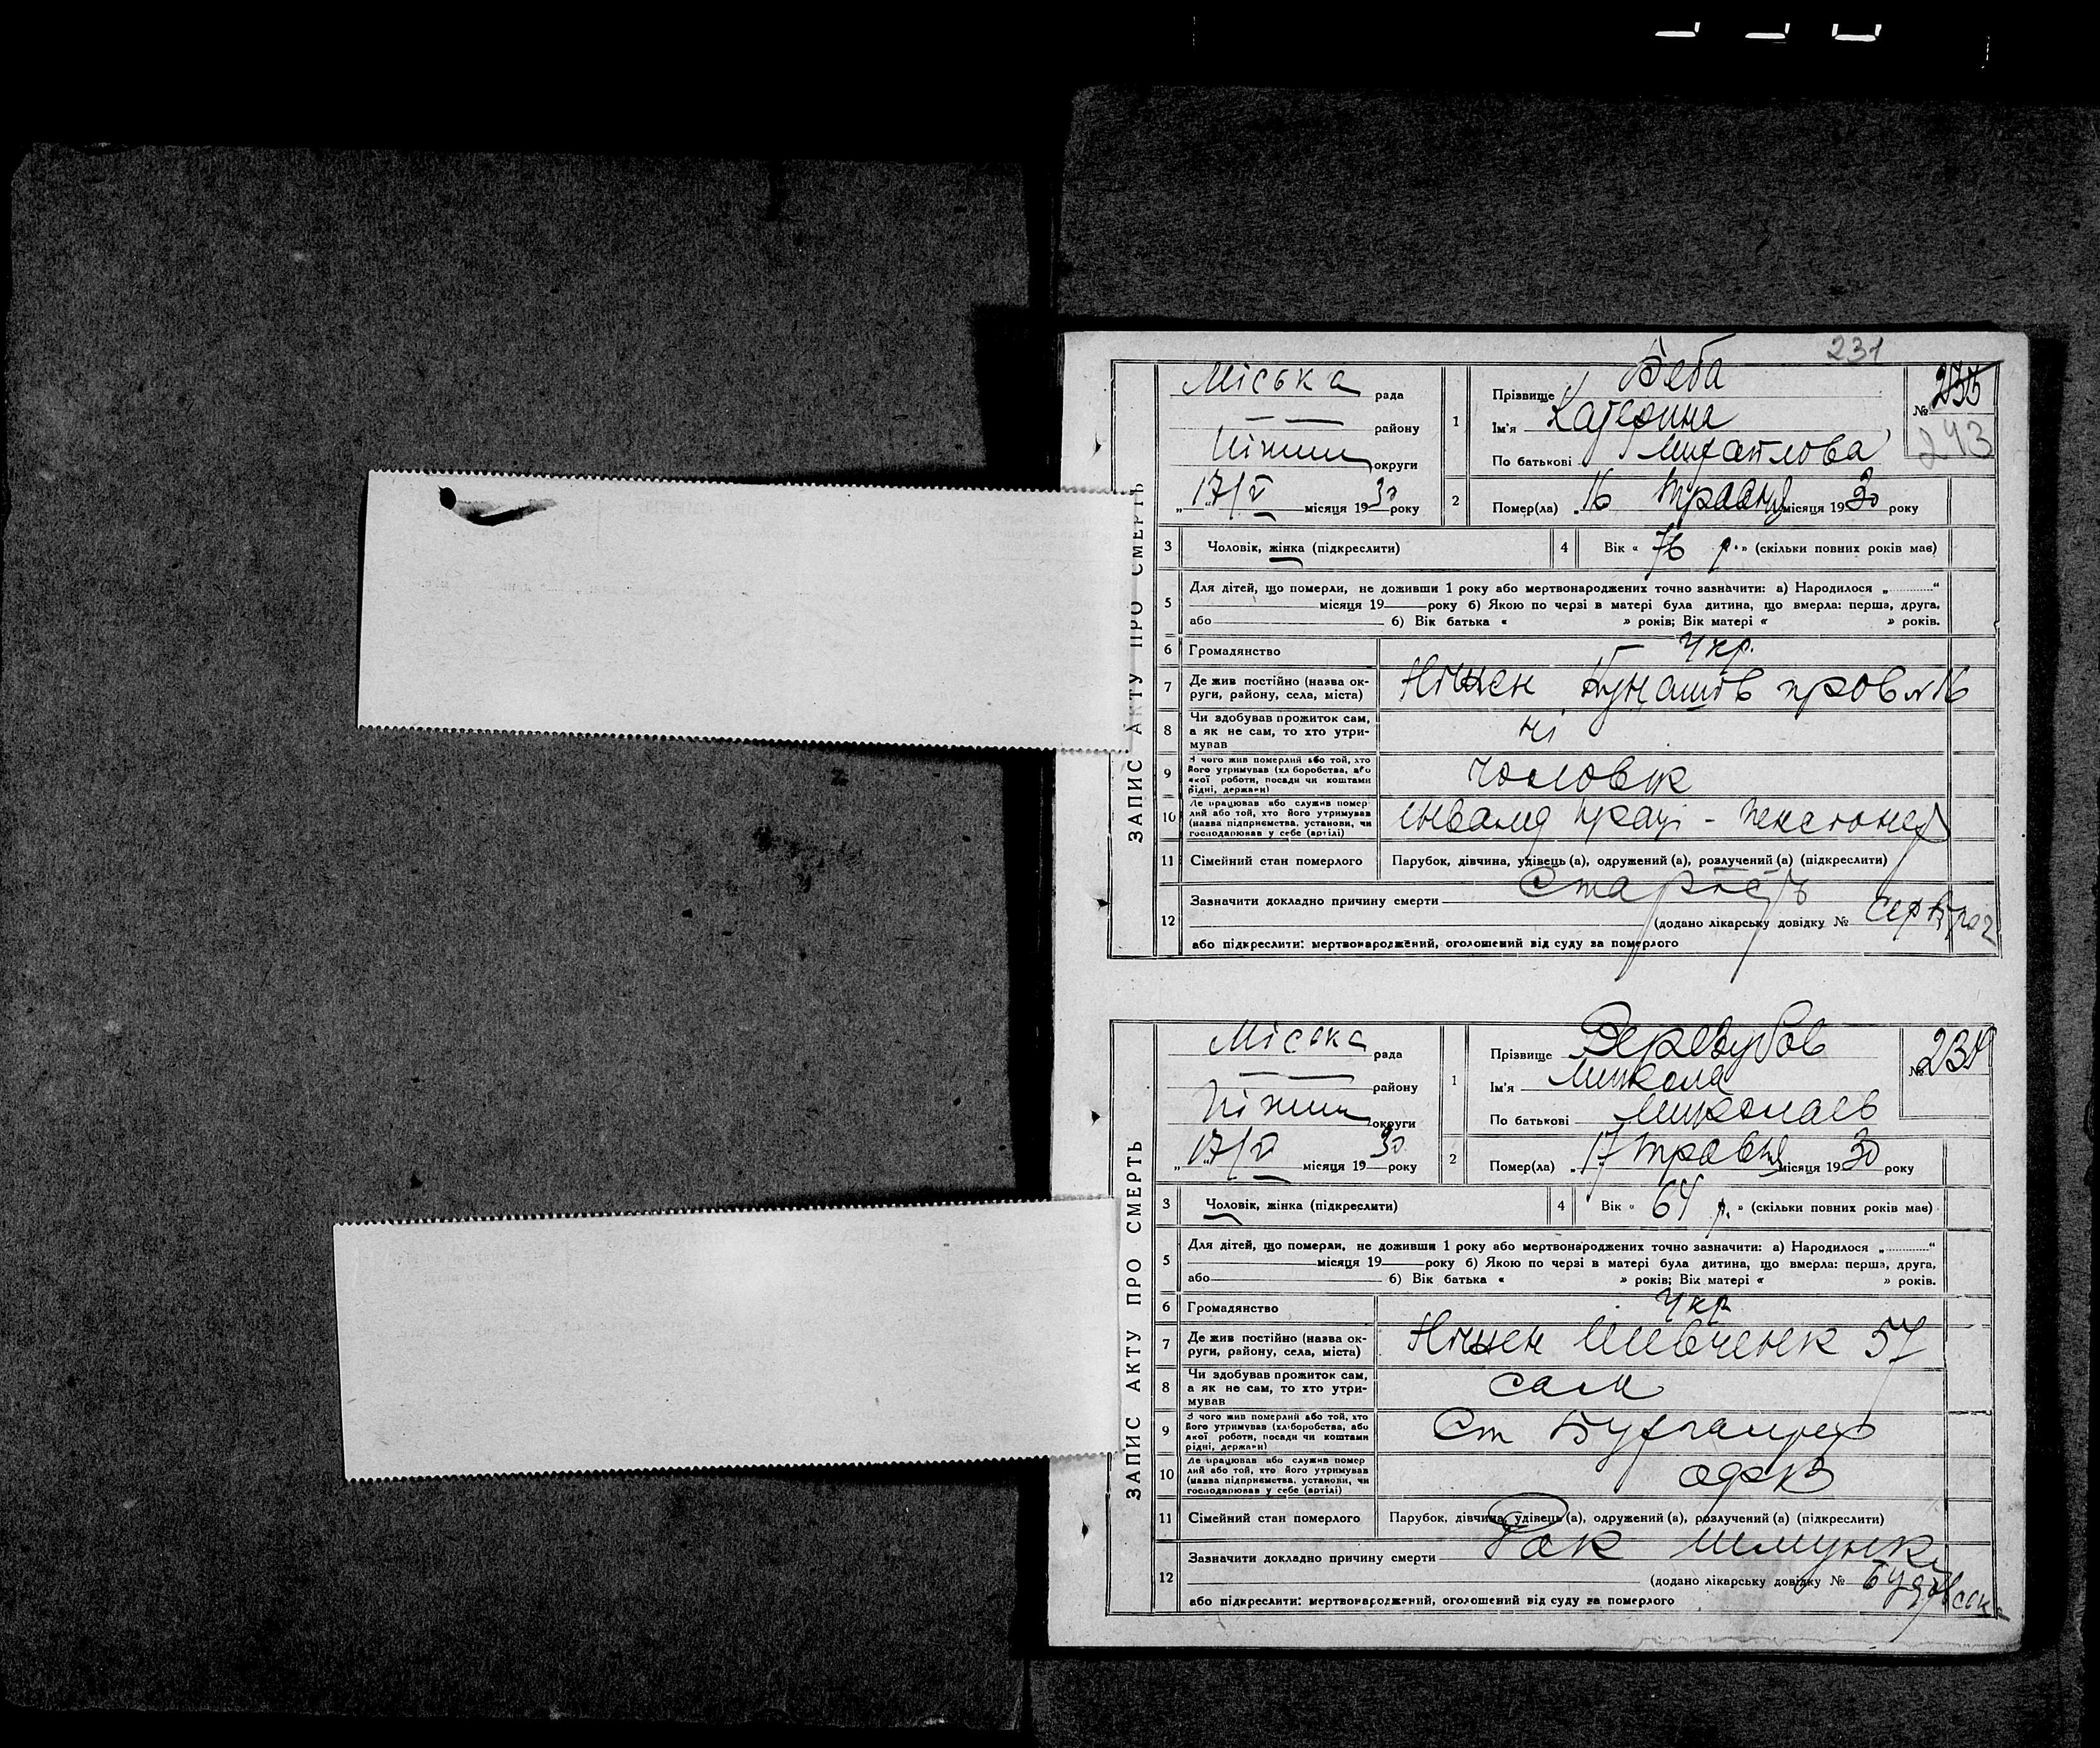 231
ЗАПИС АКТУ ПРО СМЕРТЬ
Міська рада
району
Ніжин округи
„17/V“ місяця 1930 року
1
Прізвище
Ім'я Катерина
По батькові Михайлова
№
243
2
Помер(ла) „16 травня місяця 1930 року
3 Чоловік, жінка (підкреслити)
4 Вік « 76 р.» (скільки повних років мав)
5 Для дітей, що померли, не доживши 1 року або мертвонароджених точно зазначити: а) Народилося „ “
місяця 19 року б) Якою по черзі в матері була дитина, що вмерла: перша, друга,
або б) Вік батька « » років; Вік матері « » років.
6 Громадянство Укр.
7 Де жив постійно (назва ок-
руги, району, села, міста) Ніжен пров №16
8 Чи здобував прожиток сам,
а як не сам, то хто утри-
мував ні
9 З чого жив померлий або той, хто
його утримував (хліборобства, або
якої роботи, посади чи коштами
рідні, держави) чоловік
10 Де працював або служив помер-
лий або той, хто його утримував
(назва підприємства, установи, чи
господарював у себе (артілі) инвалид праці - пенсионер
11 Сімейний стан померлого Парубок, дівчина, удівець (а), одружений (а), розлучений (а) (підкреслити)
12 Зазначити докладно причину смерти Старость
(додано лікарську довідку №
або підкреслити: мертвонароджений, оголошений від суду за померлого
ЗАПИС АКТУ ПРО СМЕРТЬ
Міська рада
району
Ніжин округи
„17/V“ місяця 1930 року
1
Прізвище
Ім'я Микола
По батькові Миколаєв
№
2
Помер(ла) „17 травня місяця 1930 року
3 Чоловік, жінка (підкреслити)
4 Вік « 64 р.» (скільки повних років мав)
5 Для дітей, що померли, не доживши 1 року або мертвонароджених точно зазначити: а) Народилося „ “
місяця 19 року б) Якою по черзі в матері була дитина, що вмерла: перша, друга,
або б) Вік батька « » років; Вік матері « » років.
6 Громадянство Укр
7 Де жив постійно (назва ок-
руги, району, села, міста) Ніжен Шевченк 57
8 Чи здобував прожиток сам,
а як не сам, то хто утри-
мував сам
9 З чого жив померлий або той, хто
його утримував (хліборобства, або
якої роботи, посади чи коштами
рідні, держави) Ст Бухгалтер
10 Де працював або служив помер-
лий або той, хто його утримував
(назва підприємства, установи, чи
господарював у себе (артілі)
11 Сімейний стан померлого Парубок, дівчина, удівець (а), одружений (а), розлучений (а) (підкреслити)
12 Зазначити докладно причину смерти Рак шлунку
(додано лікарську довідку №
або підкреслити: мертвонароджений, оголошений від суду за померлого